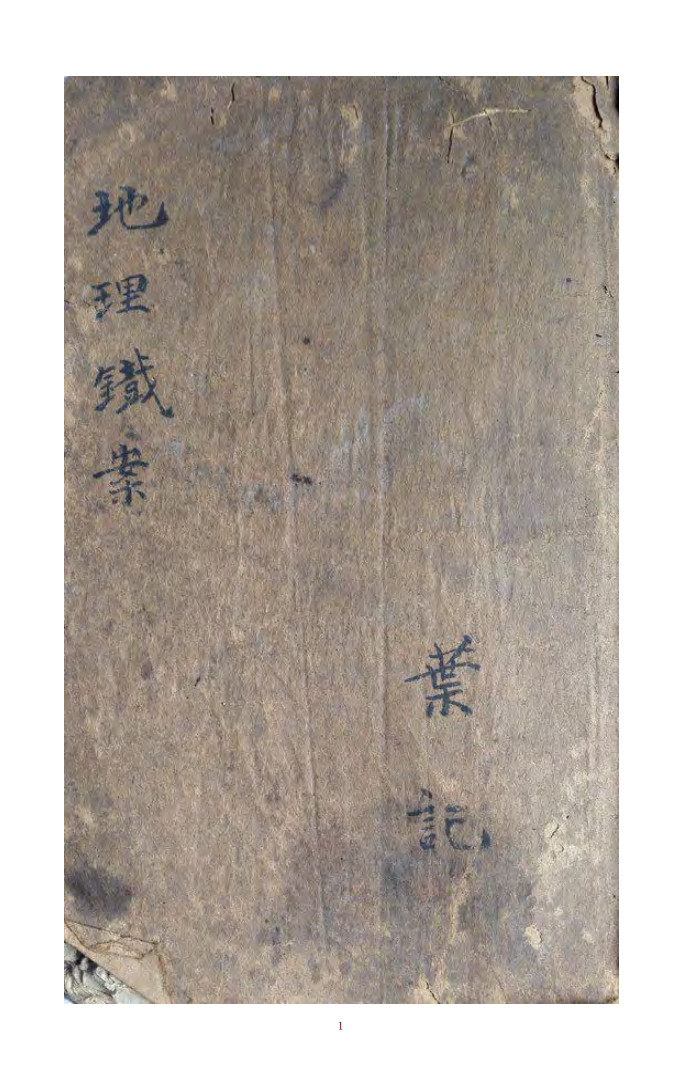 地理鐵案
葉記
1